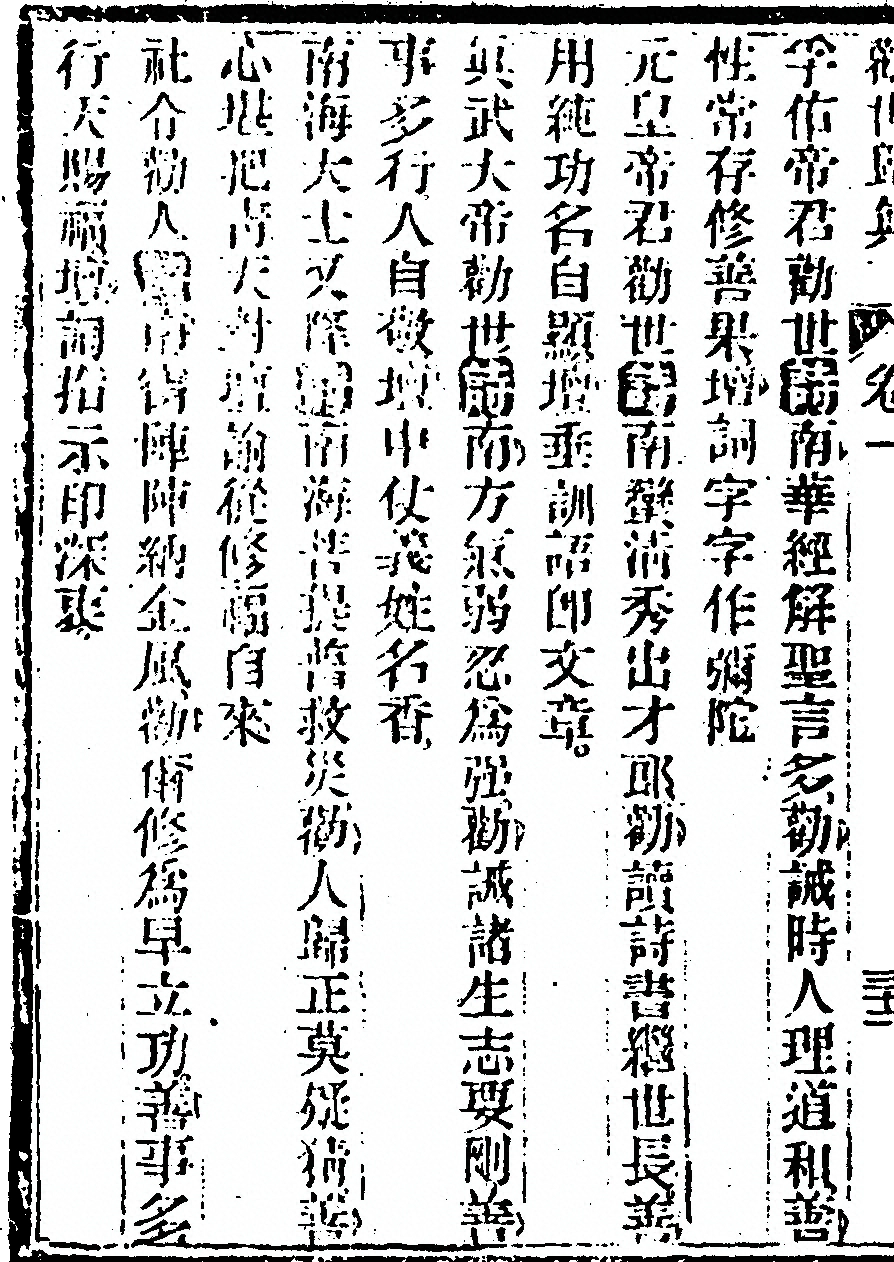 卷一
三十二
孚佑帝君勸世詩南華經解聖言多勸誡時人理道和善
性常存修善果壇詞字字作彌陀
元皇帝君勸世詩南蠻清秀出才郎勸讀詩書繼世長善
用純功名自顯壇垂訓語即文章
眞武大帝勸世詩南方氣弱忍為强勸誡諸生志要剛善
事多行人自敬壇中仗義姓名香
南海大士又降詩南海菩提普救災勸人歸正莫疑猜善
心堪把青天對壇諭從修福自來
社令勸人詩南街陣陣納金風勸爾修為早立功善事多
行天賜福壇詞指示印深衷